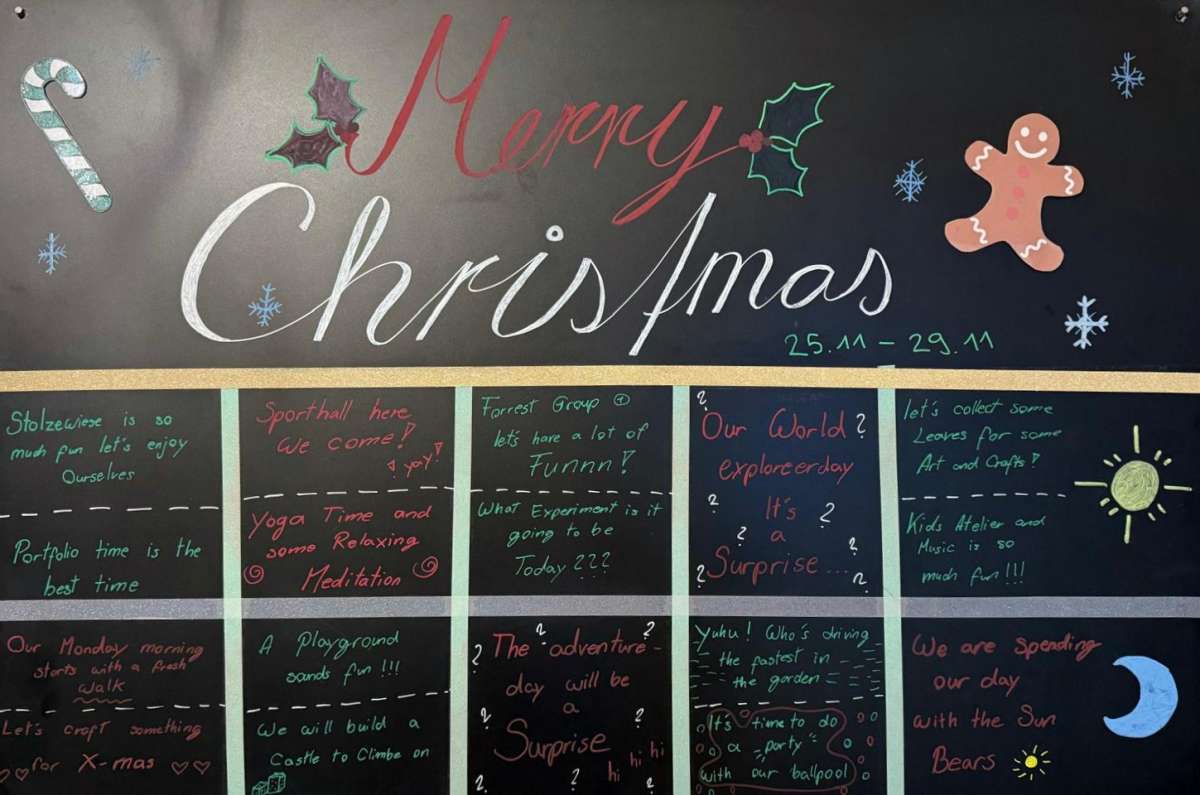 Merry
Christmas
25.11 - 29.11
Stolzewiese is so
much fun let's enjoy
Ourselves
Portfolio time is the
best time
Sporthall here
We come!
yay!
Yoga Time and
some Relaxing
Meditation
Forrest Group
let's have a lot of
Funnn!
What Experiment is it
going to be
Today ???
? Our World ?
exploreerday
? It's ?
? a ?
? Surprise... ?
let's collect some
Leaves for some
Art and Crafts!
Kids Atelier and
Music is so
much fun!!!
Our Monday morning
starts with a fresh
walk
Let's craft something
for X-mas
A Playground
sounds fun !!!
We will build a
Castle to Climbe on
? ?
? The adventure-
day will be
? a ?
Surprise
hi hi hi
? ? ?
Yuhu! Who's driving
the fastest in
the garden
It's time to do
a "party"
with our ballpool
We are spending
our day
with the Sun
Bears